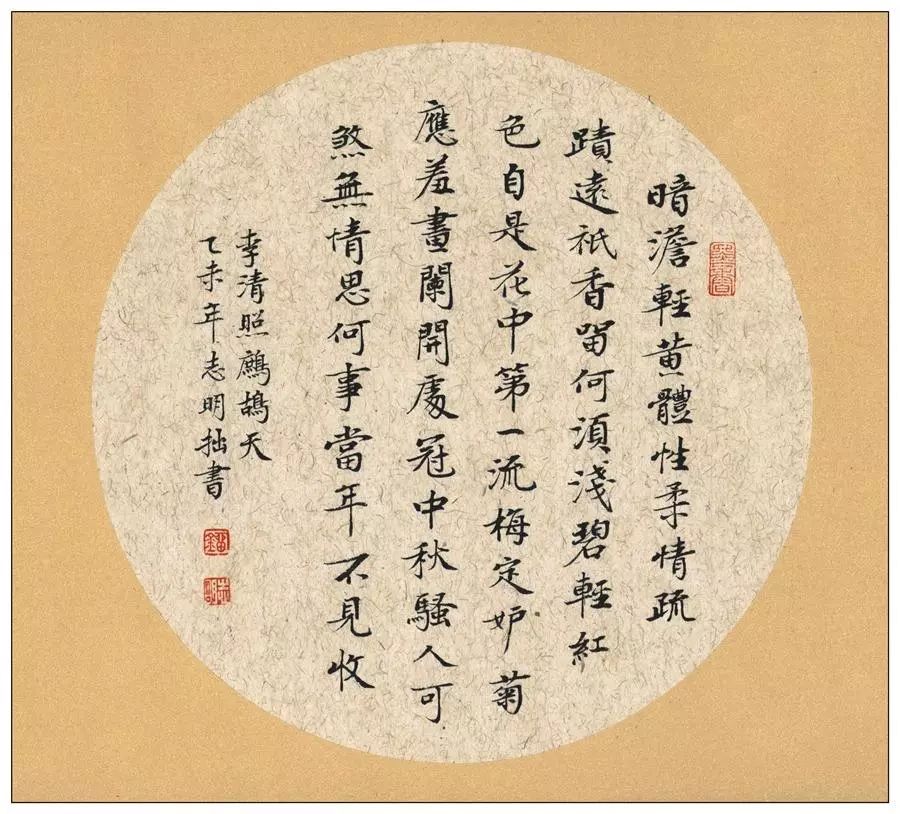 暗澹輕黃體性柔情疏
蹟遠祇香留何須淺碧輕紅
色自是花中第一流梅定妒菊
應羞畫闌開處冠中秋騷人可
煞無情思何事當年不見收
李清照鷓鴣天
乙未年志明拙書